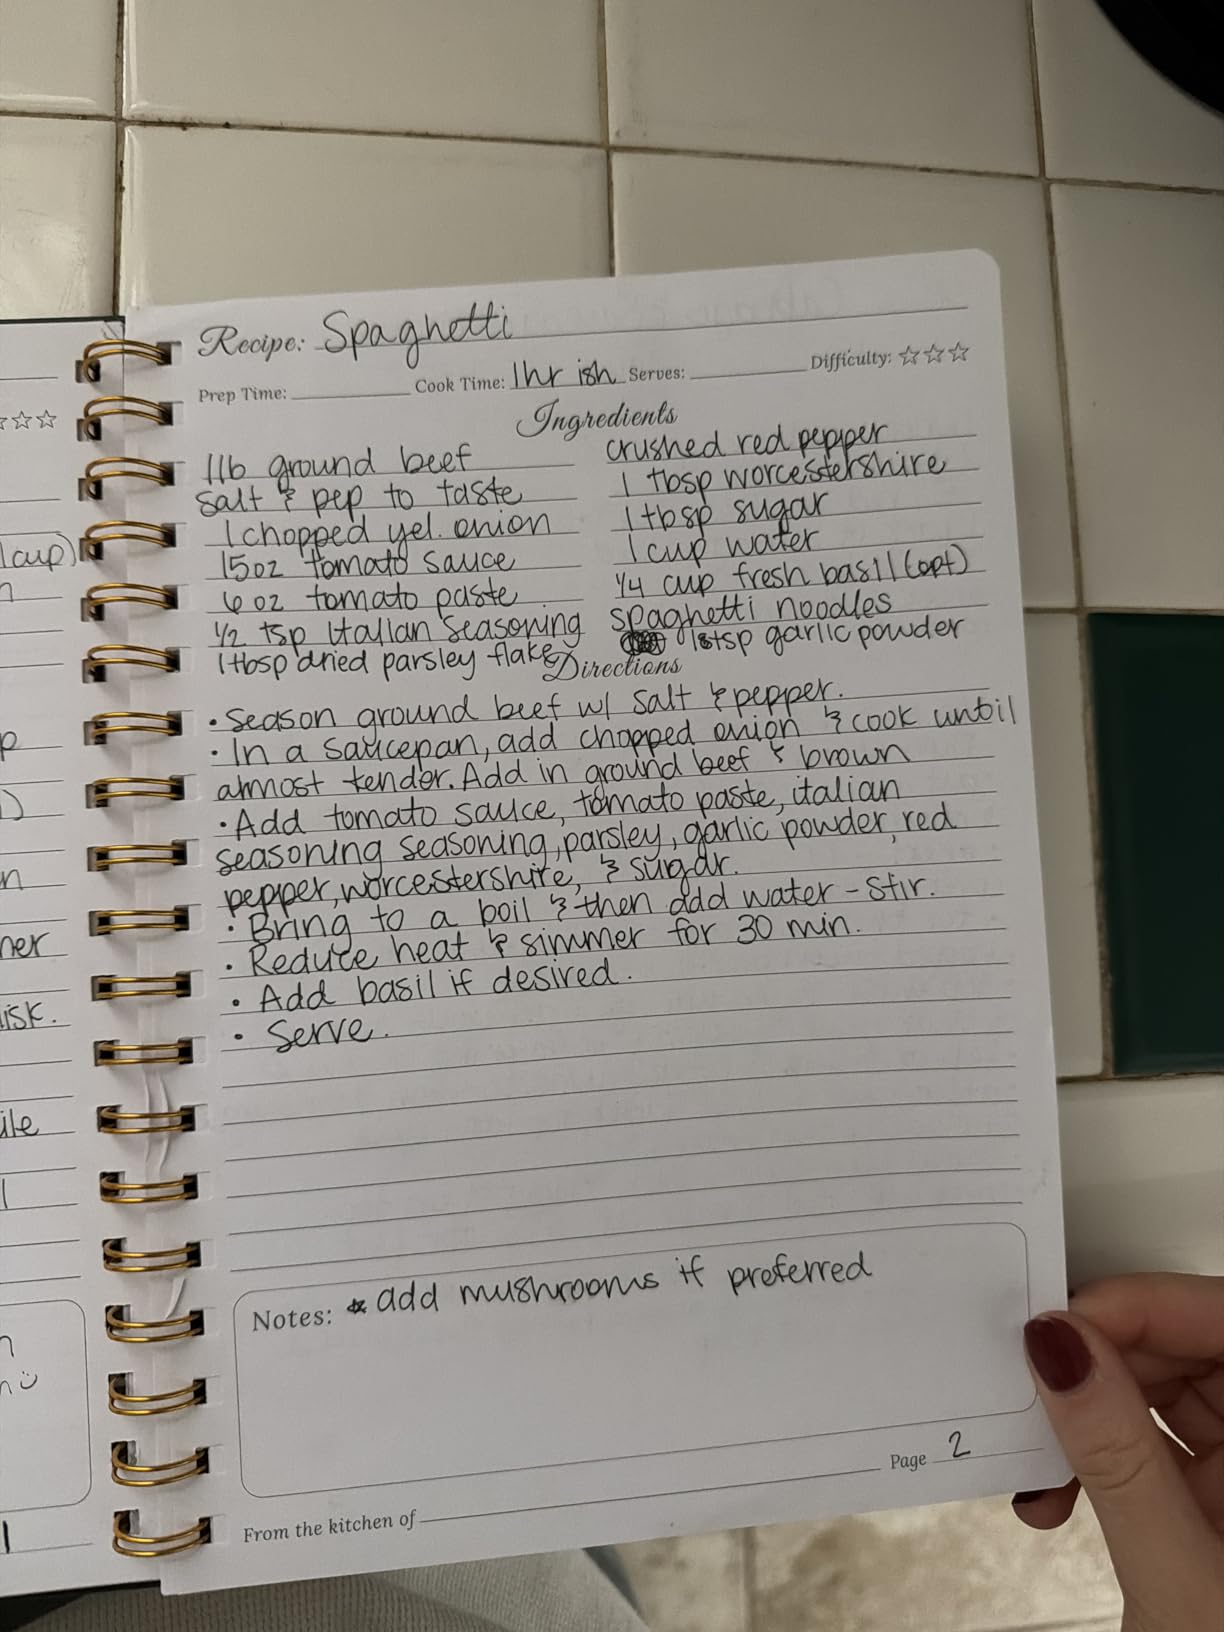 Recipe: Spaghetti
Prep Time: Cook Time: 1hr ish Serves: Difficulty: ☆☆☆
Ingredients
1lb ground beef
salt & pep to taste
1 chopped yel. onion
15oz tomato sauce
6 oz tomato paste
1/2 tsp Italian seasoning
1 tbsp dried parsley flake
crushed red pepper
1 tbsp worcestershire
1 tbsp sugar
1 cup water
1/4 cup fresh basil (opt)
spaghetti noodles
1 tsp garlic powder
Directions
• Season ground beef w/ salt & pepper.
• In a saucepan, add chopped onion & cook until
almost tender. Add in ground beef & brown
• Add tomato sauce, tomato paste, italian
seasoning seasoning, parsley, garlic powder, red
pepper, worcestershire, & sugar.
• Bring to a boil & then add water - stir.
• Reduce heat & simmer for 30 min.
• Add basil if desired.
• Serve.
Notes: * add mushrooms if preferred
Page 2
From the kitchen of
☆☆
1 cup)
isk.
1